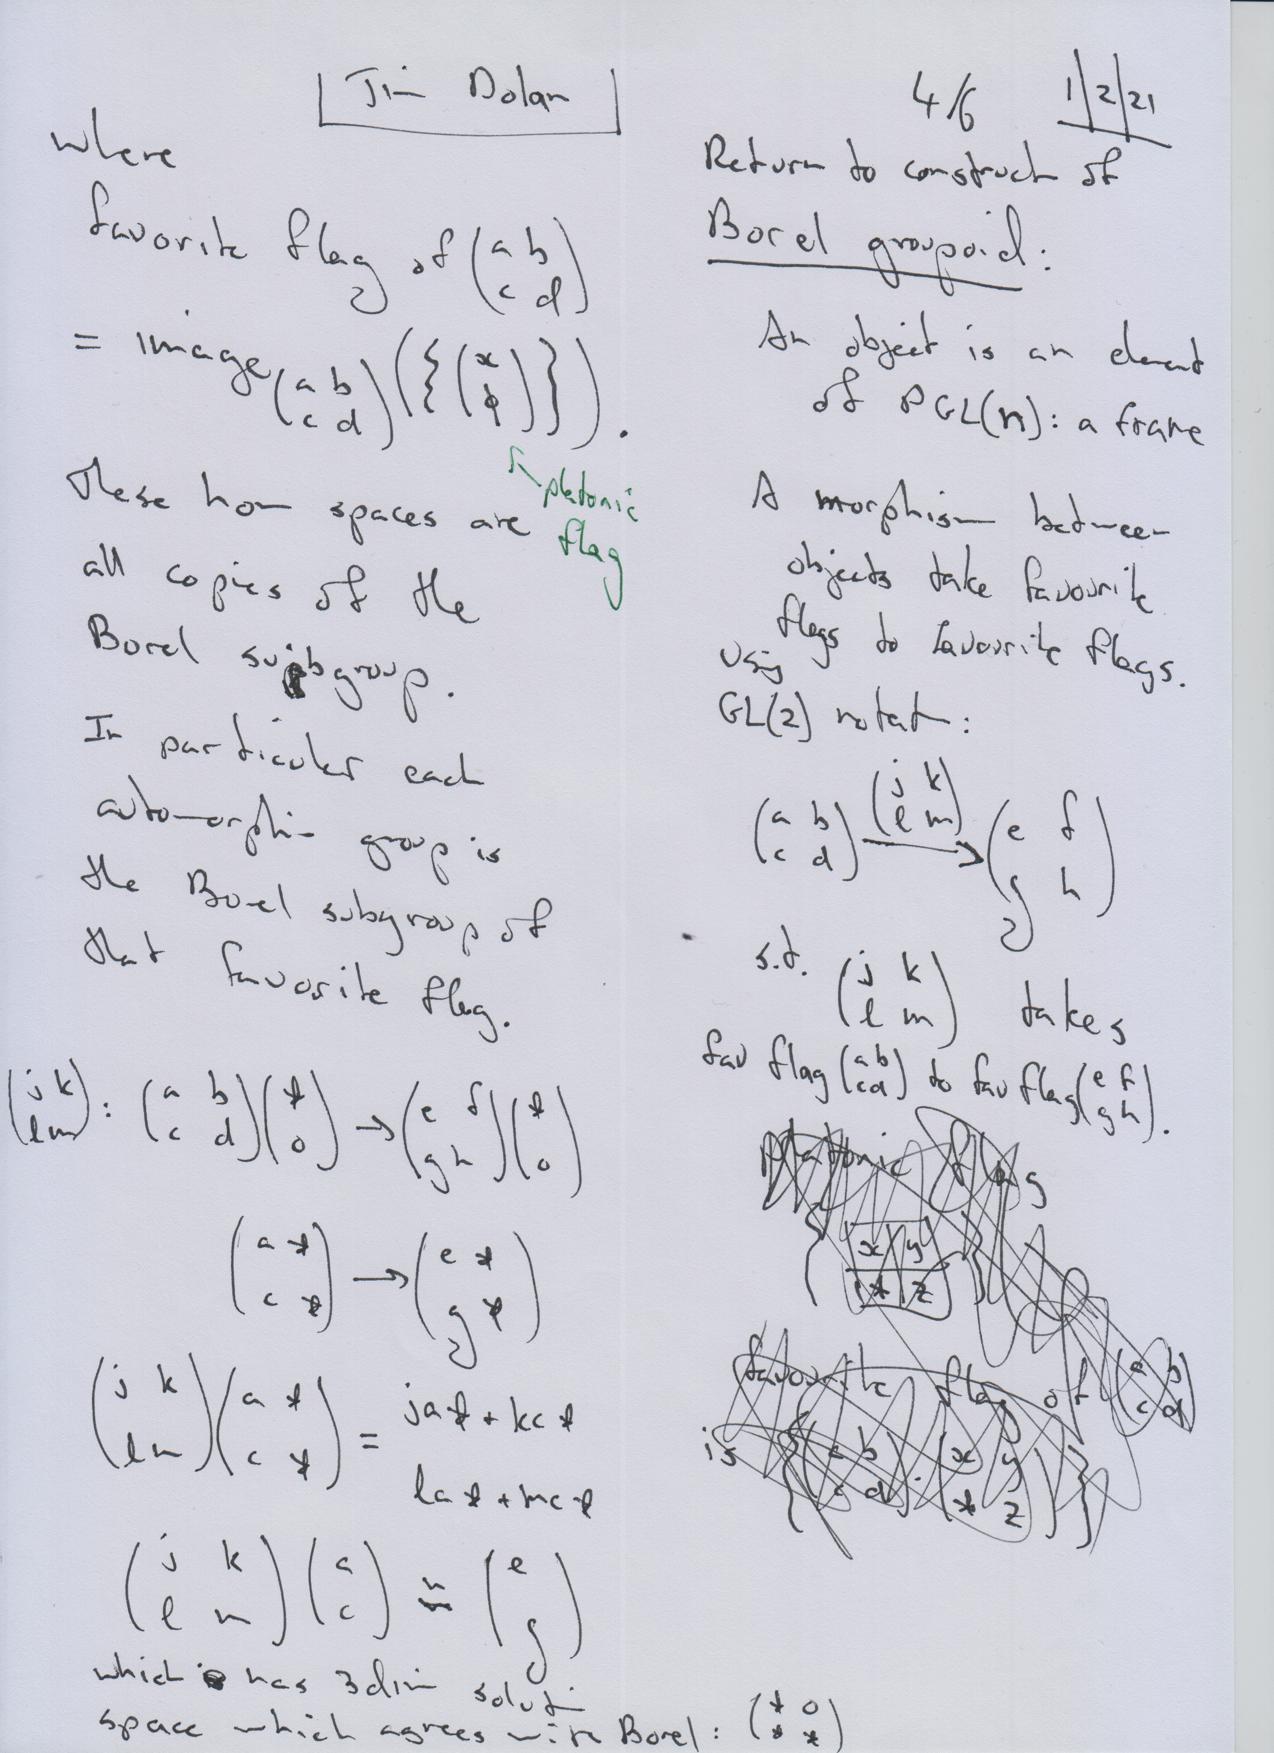 Jim Dolan
4/6 1/2/21
where
favorite flag of (a b
c d)
= image (a b
c d) ({(x
0)}).
platonic
flag
These hom spaces are
all copies of the
Borel subgroup.
In particular each
automorphism group is
the Borel subgroup of
that favorite flag.
(j k
l m): (a b
c d)(*
0) → (e f
g h)(*
0)
(a *
c *) → (e *
g *)
(j k
l m)(a *
c *) = ja* + kc*
la* + mc*
(j k
l m)(a
c) ≈ (e
g)
which has 3dim solution
space which agrees with Borel: (* 0
* *)
Return to construct of
Borel groupoid:
An object is an element
of PGL(n): a frame
A morphism between
objects take favourite
flags to favourite flags.
Using
GL(2) notat:
(a b
c d) (j k
l m) → (e f
g h)
s.t. (j k
l m) takes
fav flag (a b
c d) to fav flag (e f
g h).
platonic flag
{x y
* z}
favourite flag of (a b
c d)
is {(a b
c d)·(x y
* z)}